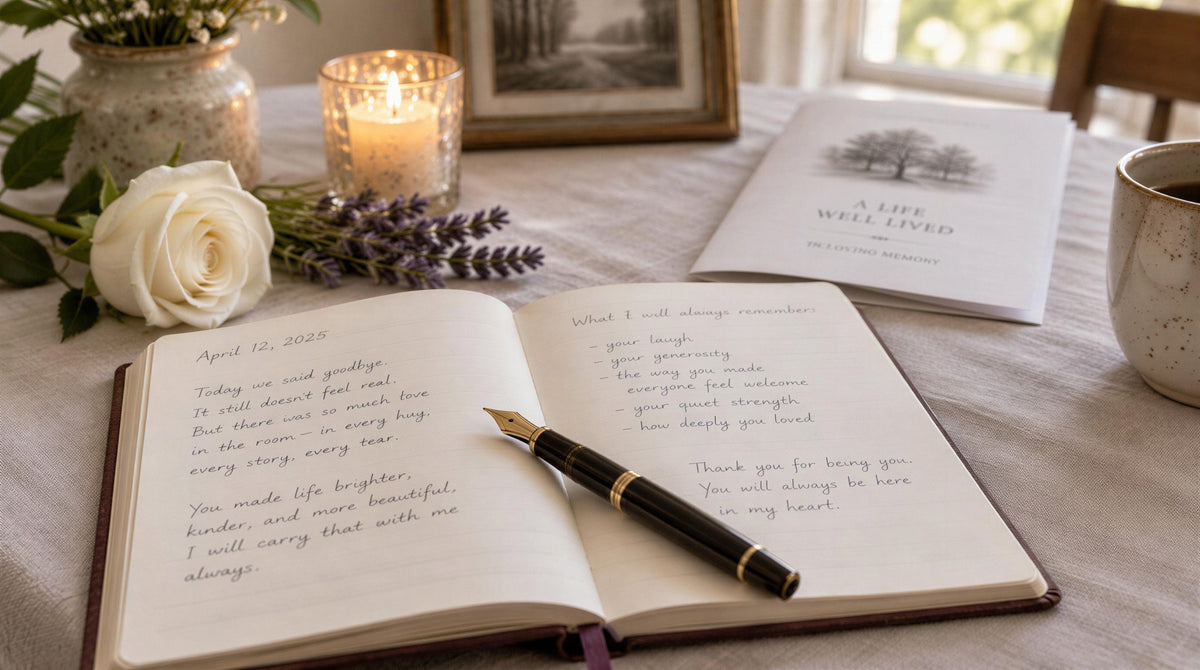 April 12, 2025
Today we said goodbye.
It still doesn't feel real.
But there was so much love
in the room – in every hug,
every story, every tear.
You made life brighter,
kinder, and more beautiful,
I will carry that with me
always.
What I will always remember:
– your laugh
– your generosity
– the way you made
everyone feel welcome
– your quiet strength
– how deeply you loved
Thank you for being you.
You will always be here
in my heart.
A LIFE
WELL LIVED
IN LOVING MEMORY